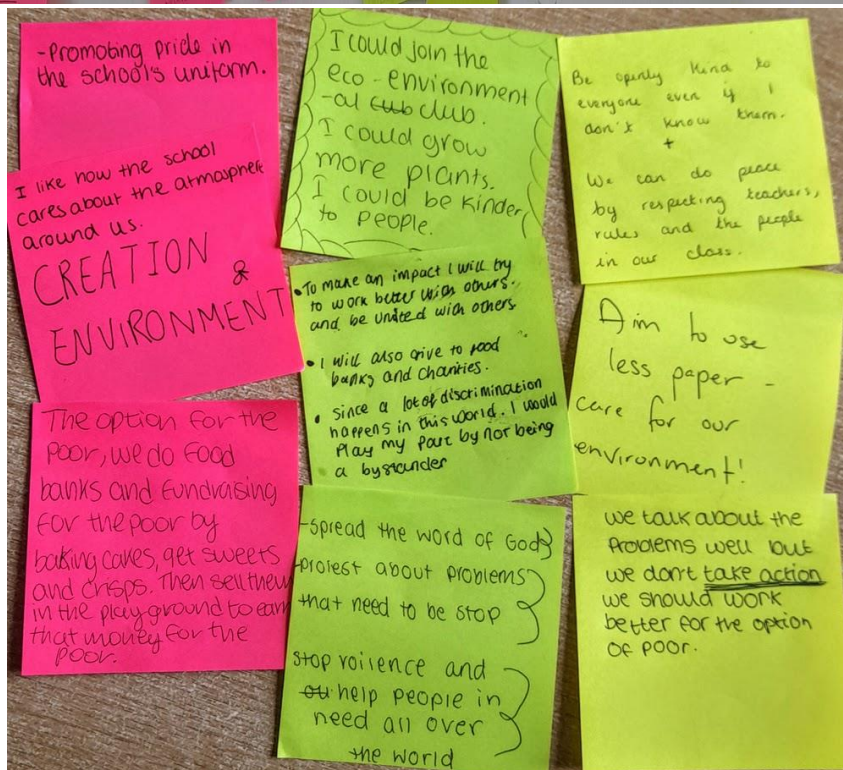 -Promoting pride in
the school's uniform.
I like how the school
cares about the atmosphere
around us.
CREATION &
ENVIRONMENT
The option for the
poor, we do food
banks and fundraising
for the poor by
baking cakes, get sweets
and crisps. Then sell them
in the playground to earn
that money for the
poor.
I could join the
eco-environment
-al cub club.
I could grow
more plants.
I could be kinder
to people.
•To make an impact I will try
to work better with others.
and be united with others
• I will also give to food
banks and charities.
• since a lot of discrimination
happens in this world. I would
Play my part by not being
a bystander
-spread the word of God
-protest about problems
that need to be stop
stop voilence and
ou help people in
need all over
the world
Be openly kind to
everyone even if I
don't know them.
+
We can do peace
by respecting teachers,
rules and the people
in our class.
Aim to use
less paper -
care for our
environment!
we talk about the
Problems well but
we don't take action
we should work
better for the option
of poor.